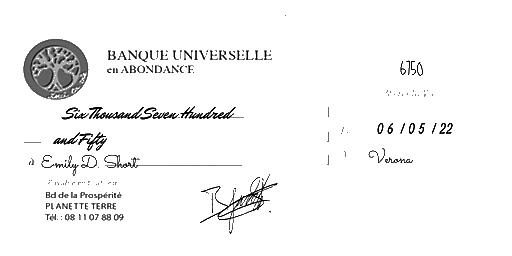 BANQUE UNIVERSELLE
en ABONDANCE
6750
Six Thousand Seven Hundred
and Fifty
06/05/22
à Emily D. Short
Verona
Bd de la Prospérité
PLANETTE TERRE
Tél. : 08 11 07 88 09